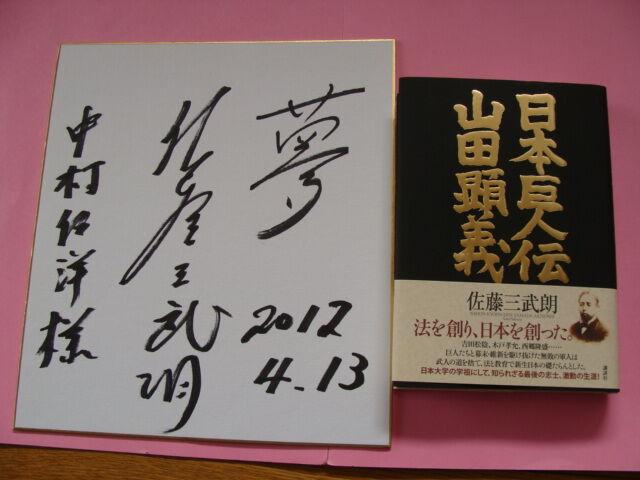 夢
佐藤三武朗
2012
4.13
中村紀洋様
日本巨人伝
山田顕義
佐藤三武朗
法を創り、日本を創った。
吉田松陰、木戸孝允、西郷隆盛……
巨人たちと幕末・維新を駆け抜けた無敗の軍人は
武人の道を捨て、法と教育で新生日本の礎たらんとした。
日本大学の学祖にして、知られざる最後の志士、激動の生涯!
講談社